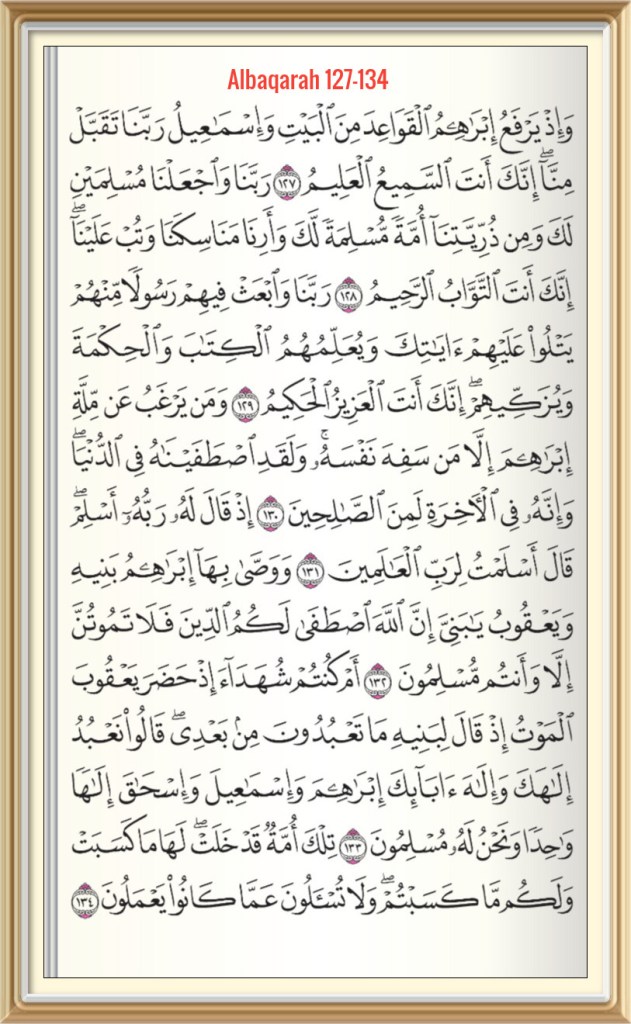 Albaqarah 127-134
وَإِذْ يَرْفَعُ إِبْرَٰهِـۧمُ ٱلْقَوَاعِدَ مِنَ ٱلْبَيْتِ وَإِسْمَـٰعِيلُ رَبَّنَا تَقَبَّلْ
مِنَّآ ۖ إِنَّكَ أَنتَ ٱلسَّمِيعُ ٱلْعَلِيمُ ١٢٧ رَبَّنَا وَٱجْعَلْنَا مُسْلِمَيْنِ
لَكَ وَمِن ذُرِّيَّتِنَآ أُمَّةً مُّسْلِمَةً لَّكَ وَأَرِنَا مَنَاسِكَنَا وَتُبْ عَلَيْنَآ ۖ
إِنَّكَ أَنتَ ٱلتَّوَّابُ ٱلرَّحِيمُ ١٢٨ رَبَّنَا وَٱبْعَثْ فِيهِمْ رَسُولًا مِّنْهُمْ
يَتْلُوا۟ عَلَيْهِمْ ءَايَـٰتِكَ وَيُعَلِّمُهُمُ ٱلْكِتَـٰبَ وَٱلْحِكْمَةَ
وَيُزَكِّيهِمْ ۖ إِنَّكَ أَنتَ ٱلْعَزِيزُ ٱلْحَكِيمُ ١٢٩ وَمَن يَرْغَبُ عَن مِّلَّةِ
إِبْرَٰهِـۧمَ إِلَّا مَن سَفِهَ نَفْسَهُۥ ۚ وَلَقَدِ ٱصْطَفَيْنَـٰهُ فِى ٱلدُّنْيَا ۖ
وَإِنَّهُۥ فِى ٱلْـَٔاخِرَةِ لَمِنَ ٱلصَّـٰلِحِينَ ١٣٠ إِذْ قَالَ لَهُۥ رَبُّهُۥٓ أَسْلِمْ ۖ
قَالَ أَسْلَمْتُ لِرَبِّ ٱلْعَـٰلَمِينَ ١٣١ وَوَصَّىٰ بِهَآ إِبْرَٰهِـۧمُ بَنِيهِ
وَيَعْقُوبُ يَـٰبَنِىَّ إِنَّ ٱللَّهَ ٱصْطَفَىٰ لَكُمُ ٱلدِّينَ فَلَا تَمُوتُنَّ
إِلَّا وَأَنتُم مُّسْلِمُونَ ١٣٢ أَمْ كُنتُمْ شُهَدَآءَ إِذْ حَضَرَ يَعْقُوبَ
ٱلْمَوْتُ إِذْ قَالَ لِبَنِيهِ مَا تَعْبُدُونَ مِنۢ بَعْدِى ۖ قَالُوا۟ نَعْبُدُ
إِلَـٰهَكَ وَإِلَـٰهَ ءَابَآئِكَ إِبْرَٰهِـۧمَ وَإِسْمَـٰعِيلَ وَإِسْحَـٰقَ إِلَـٰهًا
وَٰحِدًا وَنَحْنُ لَهُۥ مُسْلِمُونَ ١٣٣ تِلْكَ أُمَّةٌ قَدْ خَلَتْ ۖ لَهَا مَا كَسَبَتْ
وَلَكُم مَّا كَسَبْتُمْ ۖ وَلَا تُسْـَٔلُونَ عَمَّا كَانُوا۟ يَعْمَلُونَ ١٣٤